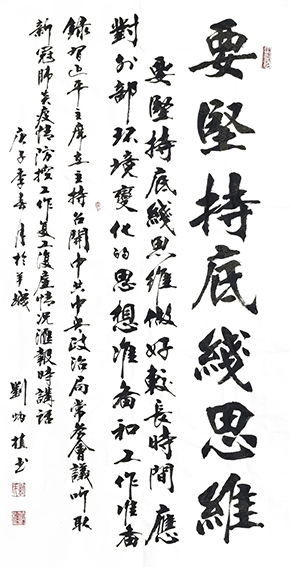 要堅持底綫思維
要堅持底綫思維做好較長時間應
對外部环境變化的思想准备和工作准备
錄習近平主席在主持召開中共中央政治局常委會議听取
新冠肺炎疫情防控工作复工復産情况滙報時講話
庚子季春月於羊城
劉炳楨书